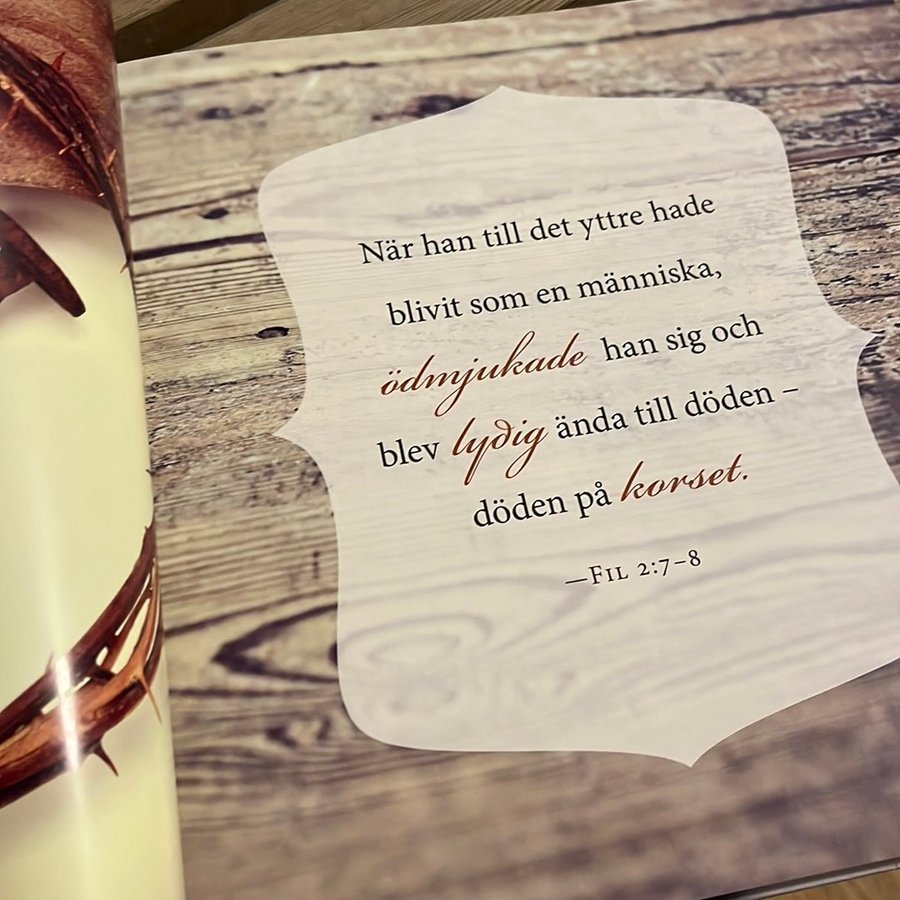 När han till det yttre hade
blivit som en människa,
ödmjukade han sig och
blev lydig ända till döden –
döden på korset.
—Fil 2:7–8